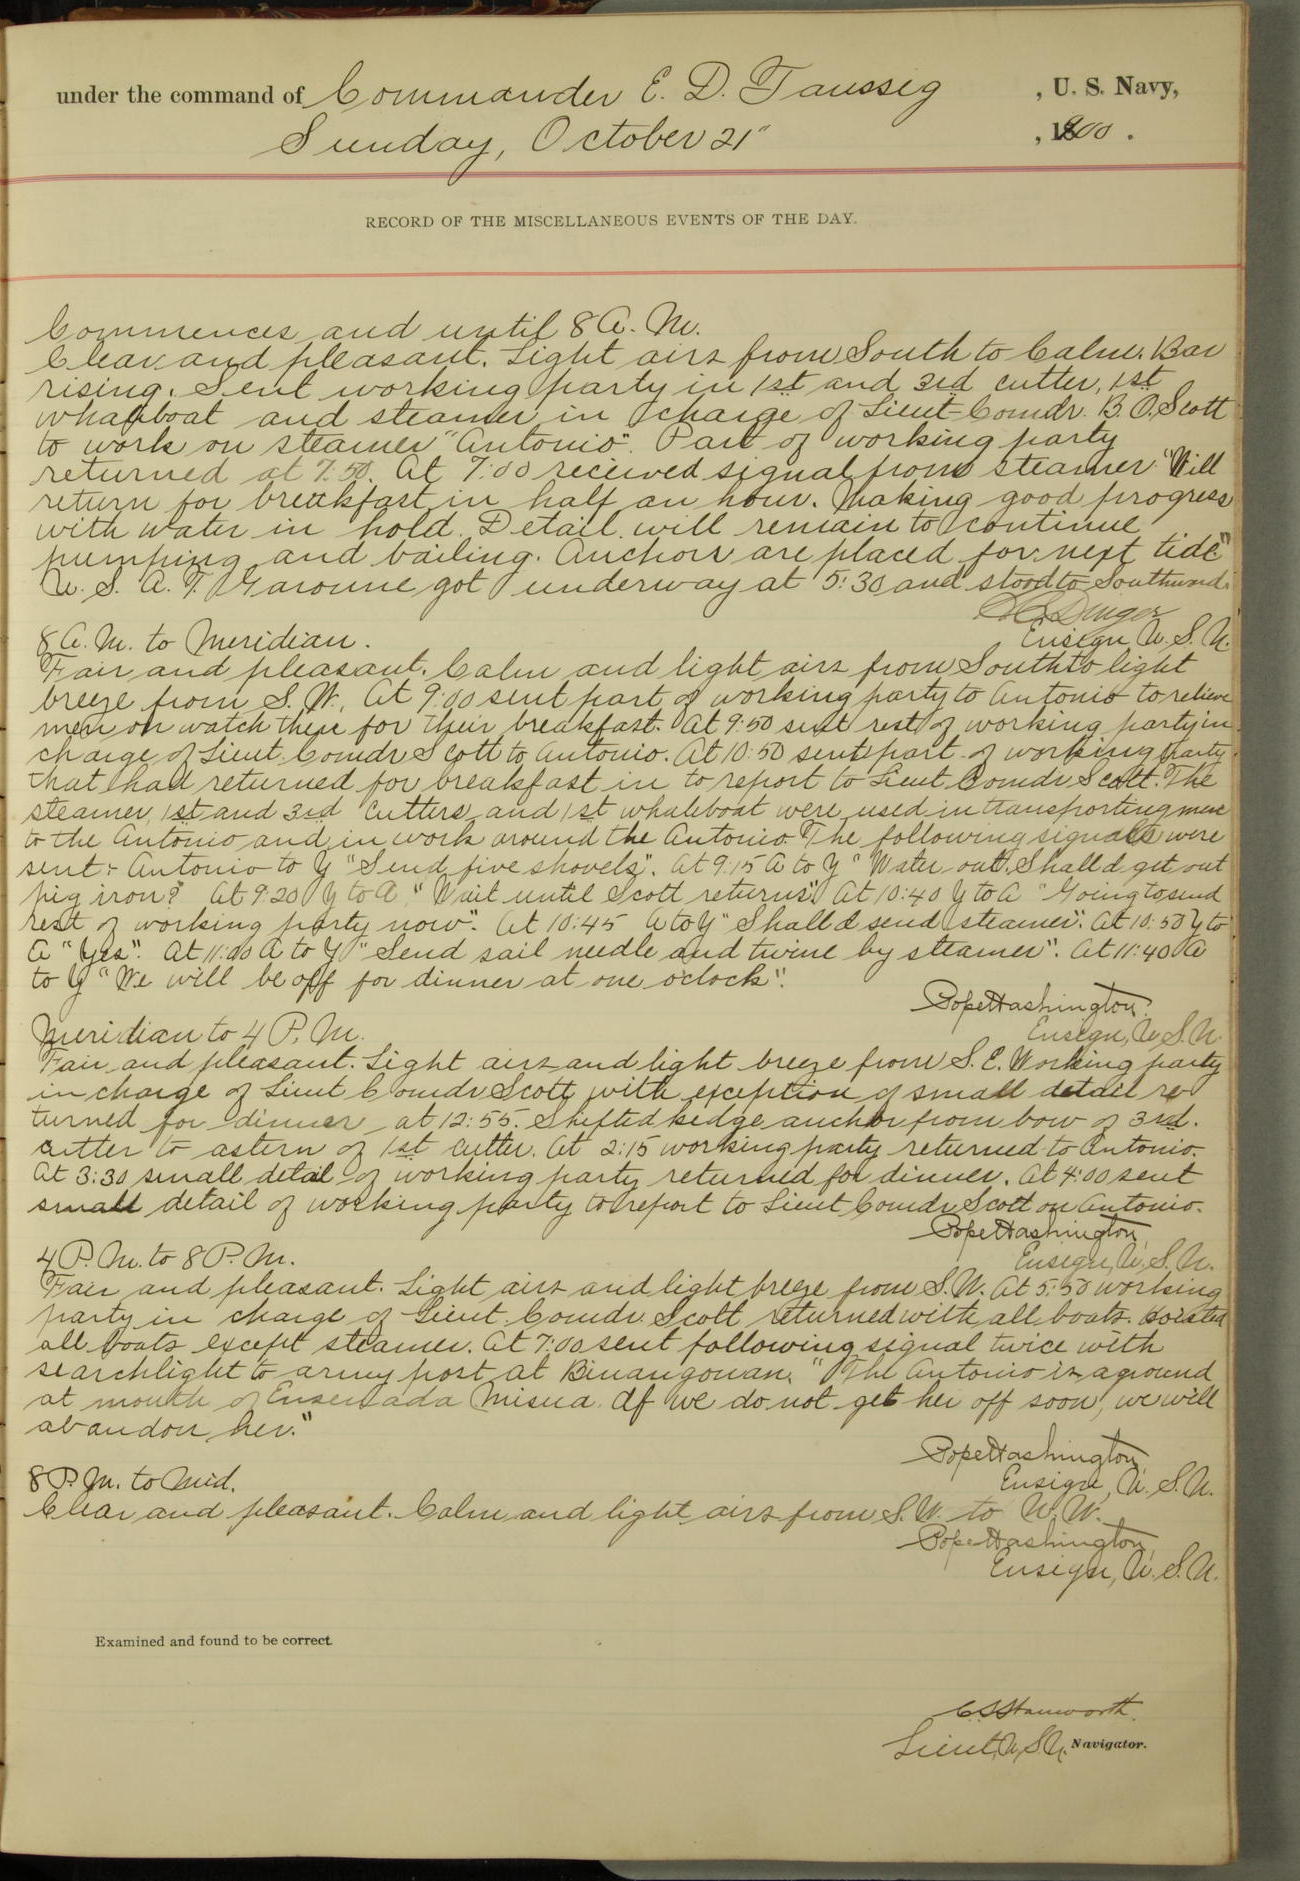 under the command of Commander E. D. Taussig , U. S. Navy,
Sunday, October 21" , 1900 .
RECORD OF THE MISCELLANEOUS EVENTS OF THE DAY.
Commences and until 8 A. M.
Clear and pleasant. Light airs from South to Calm. Bar
rising. Sent working party in 1st and 3rd cutter, 1st
whaleboat and steamer in charge of Lieut-Comdr. B. O. Scott
to work on steamer "Antonio". Part of working party
returned at 7.50. At 7:00 received signal from steamer "Will
return for breakfast in half an hour. Making good progress
with water in hold. Detail will remain to continue
pumping and bailing. Anchors are placed for next tide"
U. S. A. T. Garonne got underway at 5:30 and stood to Southward.
Ensign U. S. N.
8 A. M. to Meridian.
Fair and pleasant. Calm and light airs from South to light
breeze from S. W. At 9:00 sent part of working party to Antonio to relieve
men on watch there for their breakfast. At 9:50 sent rest of working party in
charge of Lieut. Comdr Scott to Antonio. At 10:50 sent part of working party
that had returned for breakfast in to report to Lieut Comdr Scott. The
steamer, 1st and 3rd cutters and 1st whaleboat were used in transporting men
to the Antonio and in work around the Antonio. The following signals were
sent:- Antonio to Y "Send five shovels". At 9:15 A to Y "Water out. Shall I get out
pig iron?" At 9:20 Y to A "Wait until Scott returns". At 10:40 Y to A "Going to send
rest of working party now". At 10:45 A to Y "Shall I send steamer". At 10:50 Y to
A "Yes". At 11:00 A to Y "Send sail needle and twine by steamer". At 11:40 A
to Y "We will be off for dinner at one o'clock".
Pope Washington
Ensign, U. S. N.
Meridian to 4 P. M.
Fair and pleasant. Light airs and light breeze from S. E. Working party
in charge of Lieut Comdr Scott with exception of small detail re
turned for dinner at 12:55. Shifted kedge anchor from bow of 3rd.
cutter to astern of 1st cutter. At 2:15 working party returned to Antonio.
At 3:30 small detail of working party returned for dinner. At 4:00 sent
small detail of working party to report to Lieut Comdr Scott on Antonio.
Pope Washington,
Ensign, U. S. N.
4 P. M. to 8 P. M.
Fair and pleasant. Light airs and light breeze from S. W. At 5:50 working
party in charge of Lieut. Comdr. Scott returned with all boats. Hoisted
all boats except steamer. At 7:00 sent following signal twice with
searchlight to army post at Binangonan. "The Antonio is aground
at mouth of Ensenada Misua. If we do not get her off soon, we will
abandon her."
Pope Washington
Ensign, U. S. N.
8 P. M. to Mid.
Clear and pleasant. Calm and light airs from S. W. to N. W.
Pope Washington,
Ensign, U. S. N.
Examined and found to be correct.
C S Stanworth.
Lieut, U. S. N. Navigator.